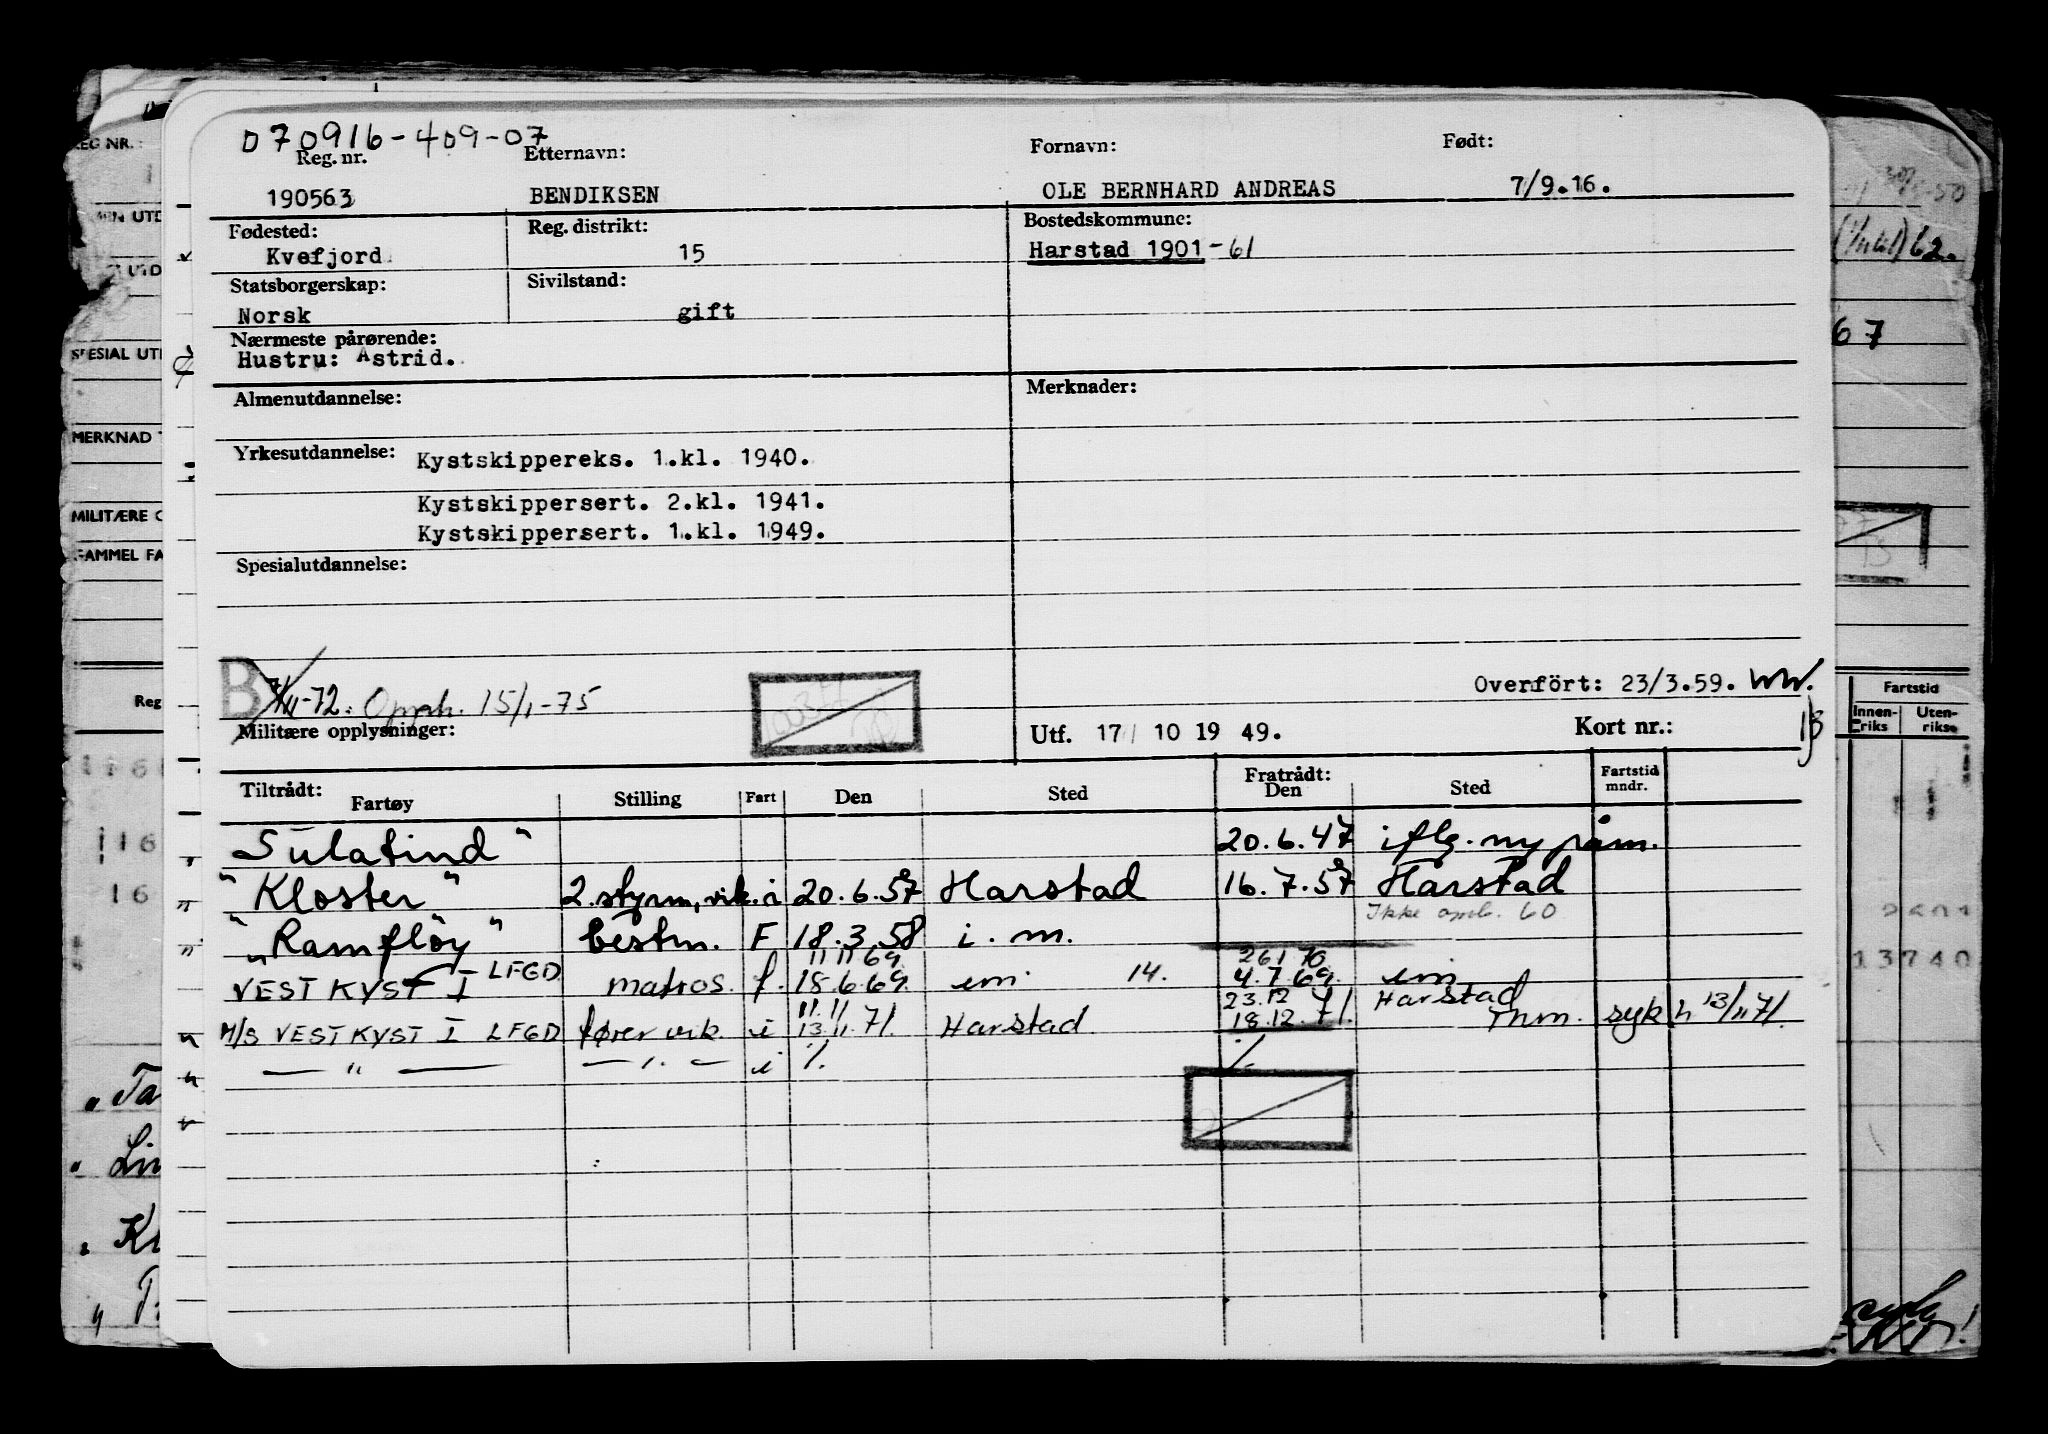 070916-409-07
Reg. nr. Etternavn: Fornavn: Født:
190563 BENDIKSEN OLE BERNHARD ANDREAS 7/9.16.
Fødested: Reg. distrikt: Bostedskommune:
Kvefjord 15 Harstad 1901-61
Statsborgerskap: Sivilstand:
Norsk gift
Nærmeste pårørende:
Hustru: Astrid.
Almenutdannelse: Merknader:
Yrkesutdannelse: Kystskippereks. 1.kl. 1940.
Kystskippersert. 2.kl. 1941.
Kystskippersert. 1.kl. 1949.
Spesialutdannelse:
B -72. Opph. 15/1-75 Overført: 23/3.59. WW.
Militære opplysninger: Utf. 17/ 10 19 49. Kort nr.:
Tiltrådt: Fartøy Stilling Fart Den Sted Fratrådt: Den Sted Fartstid mndr.
"Sulatind" 20.6.47 iflg. ny påm.
"Kloster" 2. styrm, vik. i 20.6.57 Harstad 16.7.57 Harstad
Ikke omb. 60
"Ramfløy" bestm. F 18.3.58 i. m.
11 11 69 26 1 70
VEST KYST I LFGD matros. f. 18.6.69 em 14. 4.7.69. em
11.11 23.12 Harstad
M/S VEST KYST I LFGD fører vik. i 13.11.71. Harstad 18.12.71. Thm. syk 13/11 71.
— " — — " — i %. %.
REG NR. :
MERKNAD
MILITÆRE
GAMMEL FA
SPESIAL UT
Reg
116
16
"Ta
62.
67
Fartstid
Innen-riks Uten-rikse
13740